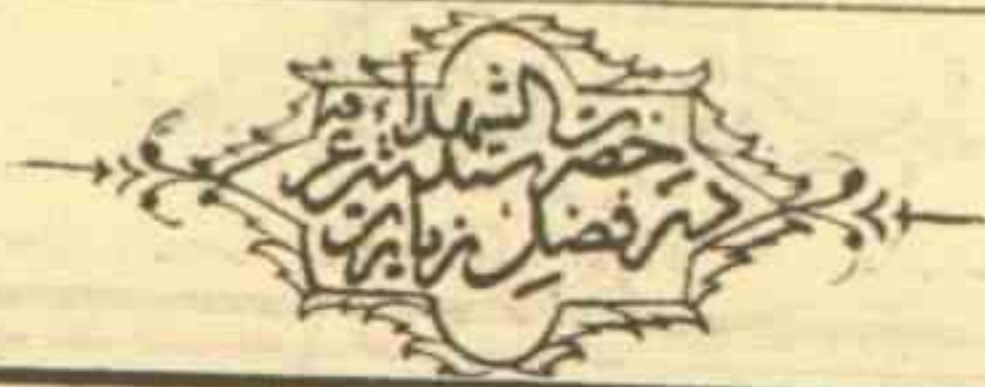 در فضل زیارت
حضرت سید
الشهداء